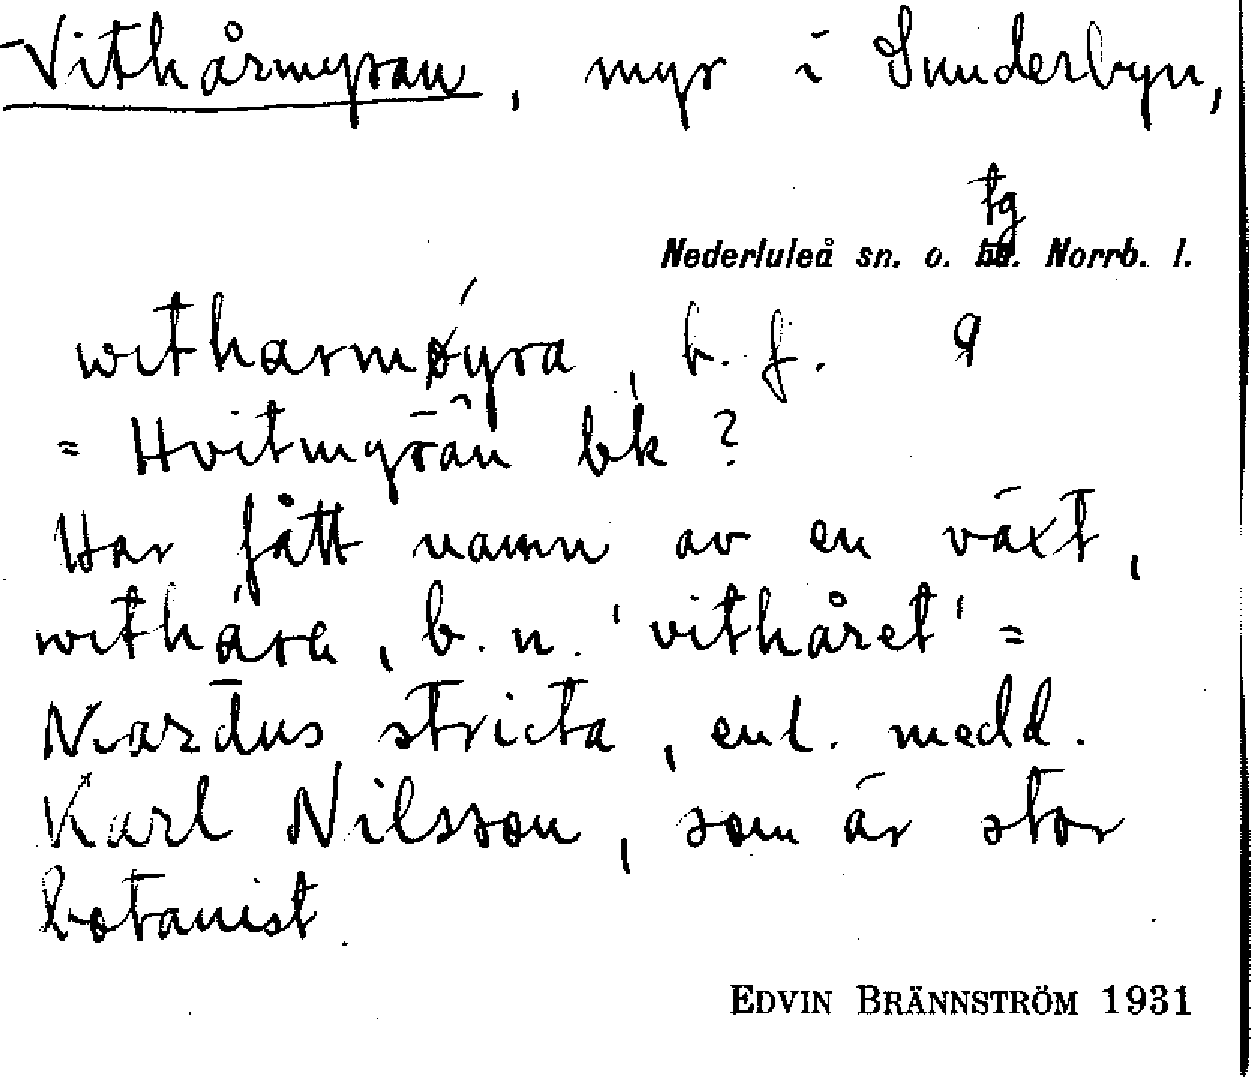 Vithårmyran, myr i Sunderbyn,
Nederluleå sn. o. tg. Norrb. l.
witharmøyra, b. f. 9
= Hvitmyran bk ?
Har fått namn av en växt,
withåra, b. n. 'vithåret' =
Nardus stricta, enl. medd.
Karl Nilsson, som är stor
botanist.
EDVIN BRÄNNSTRÖM 1931